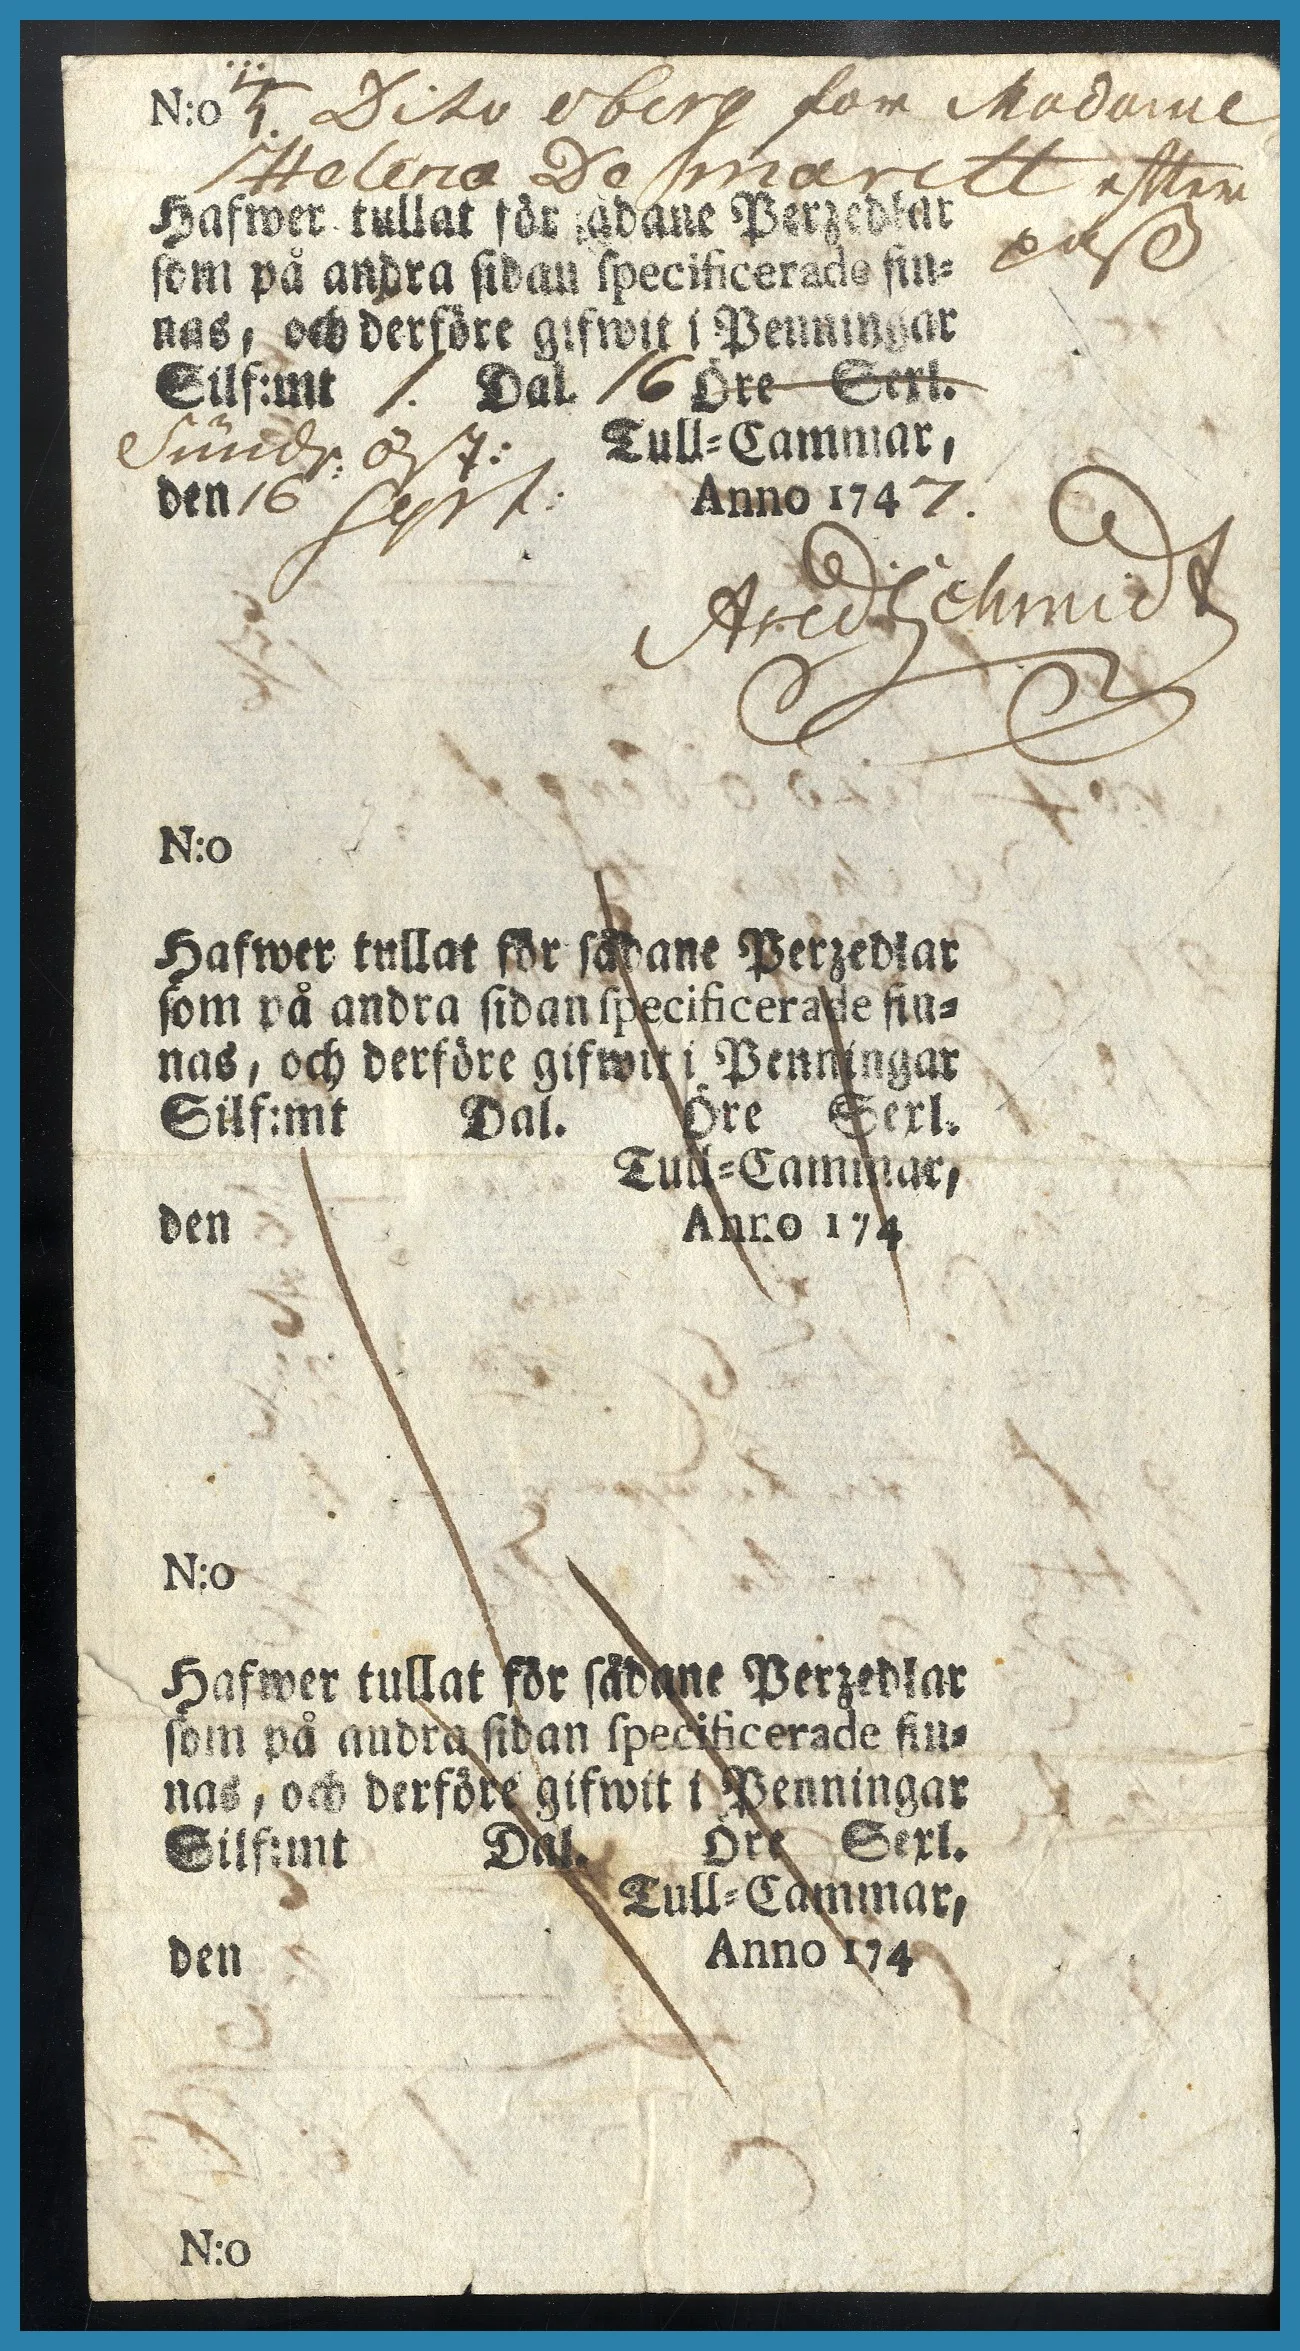 N:o Dito oberg for Madame
Helena De
Hafwer tullat för sådane Perzedlar
som på andra sidan specificerade fin=
nas, och derföre gifwit i Penningar
Silf:mt 1. Dal. 16 Öre Serl.
Tull=Cammar,
den 16 Sept: Anno 1747.
Schmidt
N:o
Hafwer tullat för sådane Perzedlar
som på andra sidan specificerade fin=
nas, och derföre gifwit i Penningar
Silf:mt Dal. Öre Serl.
Tull=Cammar,
den Anno 174
N:o
Hafwer tullat för sådane Perzedlar
som på andra sidan specificerade fin=
nas, och derföre gifwit i Penningar
Silf:mt Dal. Öre Serl.
Tull=Cammar,
den Anno 174
N:o